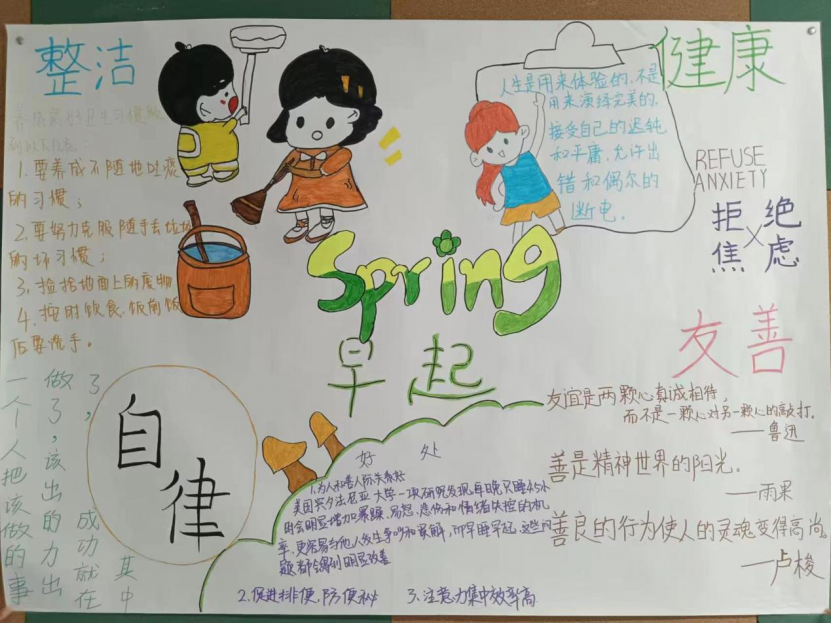 整洁
1.要养成不随地吐痰
的习惯；
2.要努力克服随手丢垃圾
的坏习惯；
3.捡拾地面上的废物
4.按时饮食、饭前饭
后要洗手。
健康
人生是用来体验的,不是
用来演绎完美的,
接受自己的迟钝
和平庸,允许出
错和偶尔的
断电。
REFUSE
ANXIETY
拒绝
焦×虑
Spring
早起
友善
友谊是两颗心真诚相待,
而不是一颗心对另一颗心的敲打.
——鲁迅
善是精神世界的阳光.
——雨果
善良的行为使人的灵魂变得高尚.
——卢梭
自律
一个人把该做的事
做了,该出的力出
了,成功就在
其中
好处
1.为人和善人际关系好
美国宾夕法尼亚大学一项研究发现,每晚只睡4.5小
时会明显增加暴躁、易怒、悲伤和情绪失控的机
率,更容易与他人发生争吵和误解,所早睡早起,这些问
题都会得到明显改善
2.促进排便,防便秘 3.注意力集中效率高